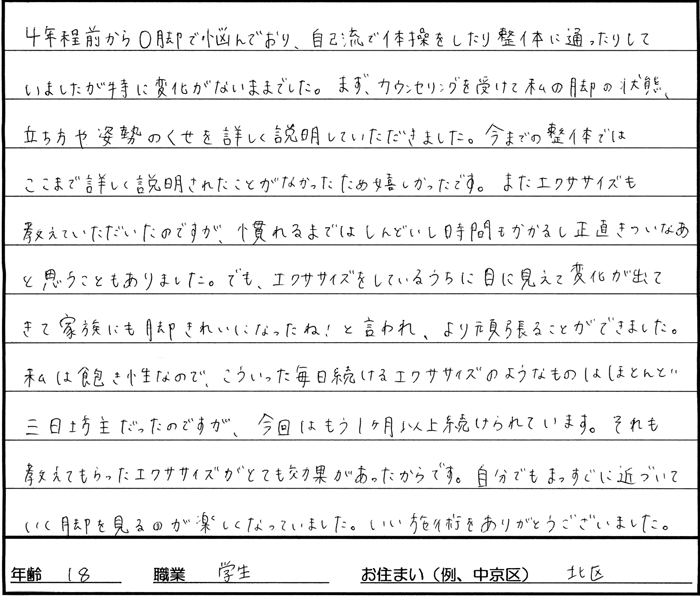 4年程前からO脚で悩んでおり、自己流で体操をしたり整体に通ったりして
いましたが特に変化がないままでした。まず、カウンセリングを受けて私の脚の状態、
立ち方や姿勢のくせを詳しく説明していただきました。今までの整体では
ここまで詳しく説明されたことがなかったため嬉しかったです。またエクササイズも
教えていただいたのですが、慣れるまではしんどいし時間もかかるし正直きついなあ
と思うこともありました。でも、エクササイズをしているうちに目に見えて変化が出て
きて家族にも脚きれいになったね!と言われ、より頑張ることができました。
私は飽き性なので、こういった毎日続けるエクササイズのようなものはほとんど
三日坊主だったのですが、今回はもう1ヶ月以上続けられています。それも
教えてもらったエクササイズがとても効果があったからです。自分でもまっすぐに近づいて
いく脚を見るのが楽しくなっていました。いい施術をありがとうございました。
年齢 18 職業 学生 お住まい(例、中京区) 北区